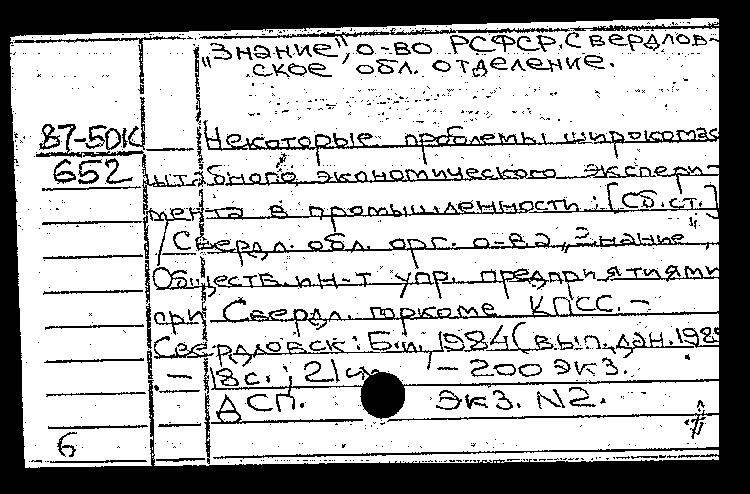 „Знание", о-во РСФСР. Свердлов-
ское обл. отделение.
87-5ДК
652
Некоторые проблемы широкомас
штабного экономического экспери-
мента в промышленности: [Сб. ст.]
/Свердл. обл. орг. о-ва „Знание",
Обществ. ин-т упр. предприятиями
при Свердл. горкоме КПСС. –
Свердловск: Б.и., 1984 (вып. дан. 1985
– 18 с.; 21 см – 200 экз.
ДСП. Экз. N2.
6